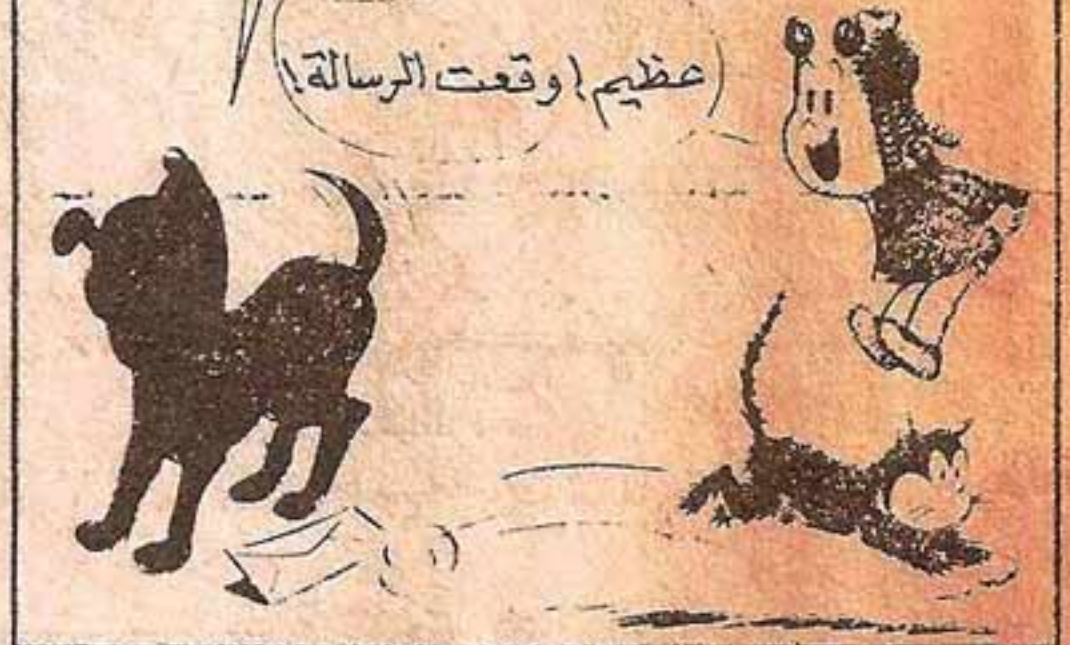 عظيم! وقعت الرسالة!